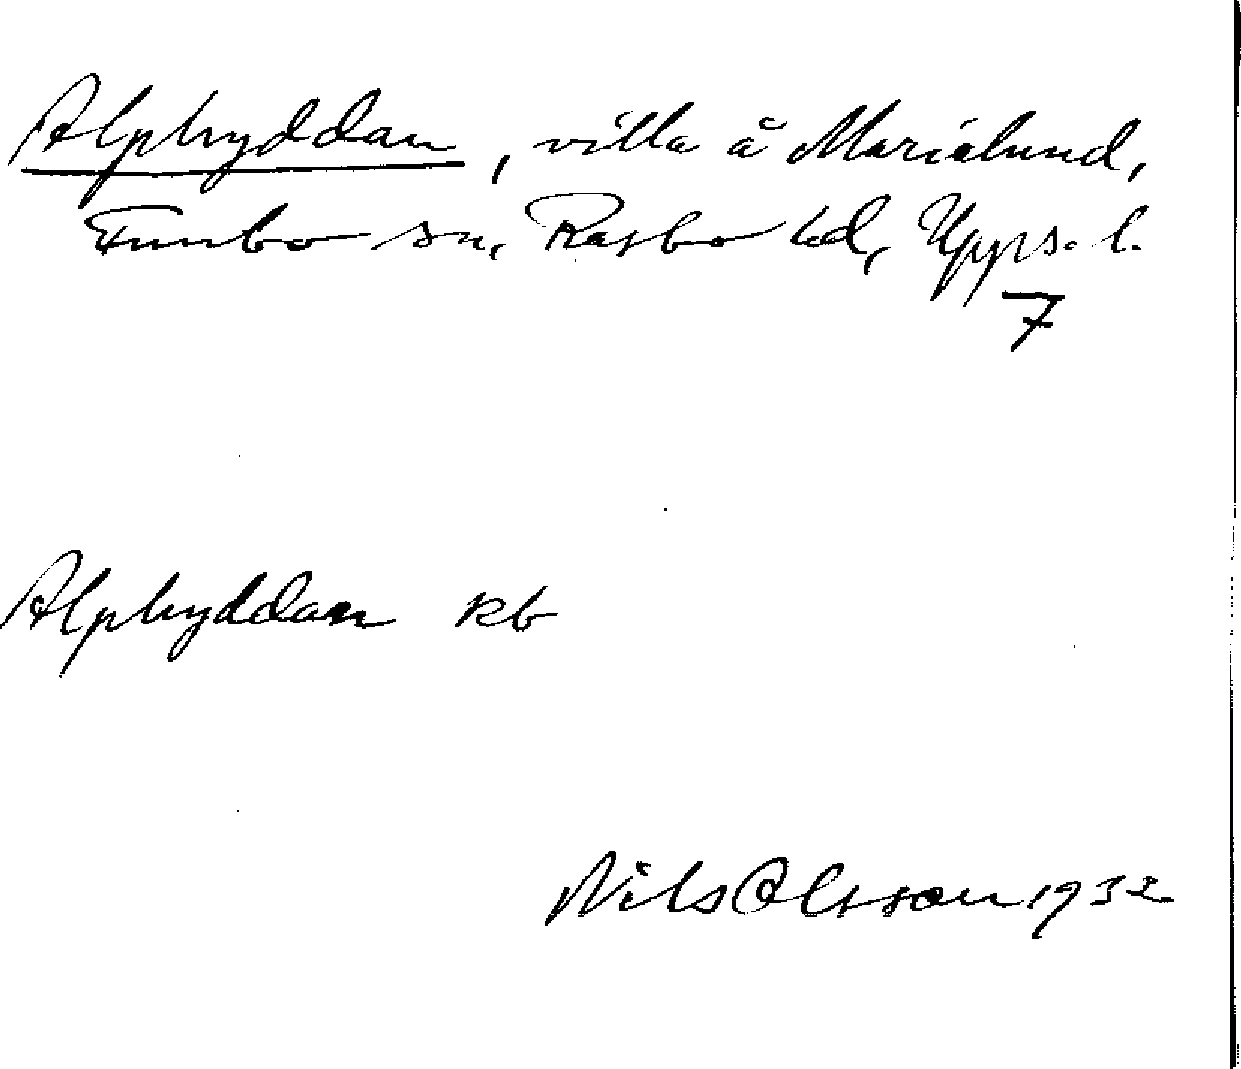 Alphyddan, villa å Marielund,
Funbo sn, Rasbo hd, Upps. l.
7
Alphyddan kb
Nils Olsson 1932